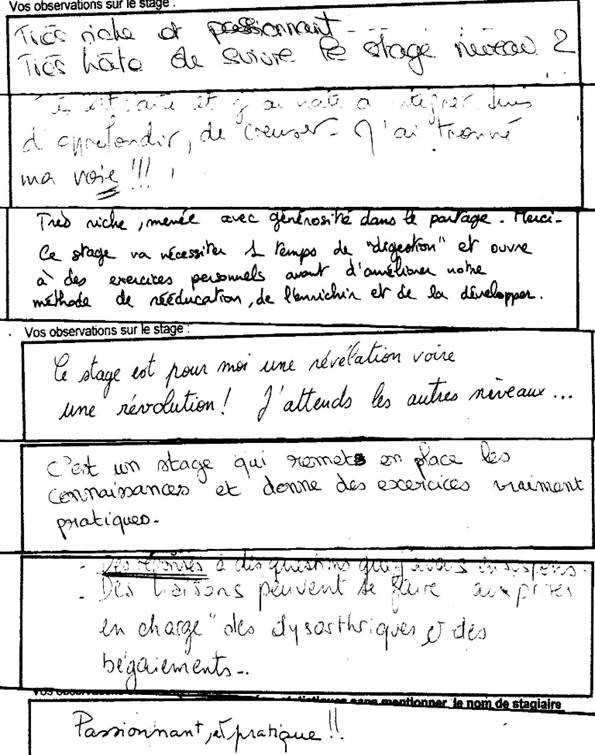 Vos observations sur le stage :
Très riche et passionnant.
Très hâte de suivre le stage niveau 2
et j'ai hâte a
d'approfondir, de creuser - J'ai trouvé
ma voie !!!
Très riche, menée avec générosité dans le partage. Merci -
Ce stage va nécessiter 1 temps de "digestion" et ouvre
à des exercices personnels avant d'améliorer notre
méthode de rééducation, de l'enrichir et de la développer.
Vos observations sur le stage :
Ce stage est pour moi une révélation voire
une révolution ! J'attends les autres niveaux ...
C'est un stage qui remets en place les
connaissances et donne des excercices vraiment
pratiques.
- Des réponses à des questions que j'avais en suspens.
- Des liaisons peuvent se faire aux prises
en charge "des dysarthriques et des
bégaiements -..
sans mentionner le nom de stagiaire
Passionnant, et pratique !!